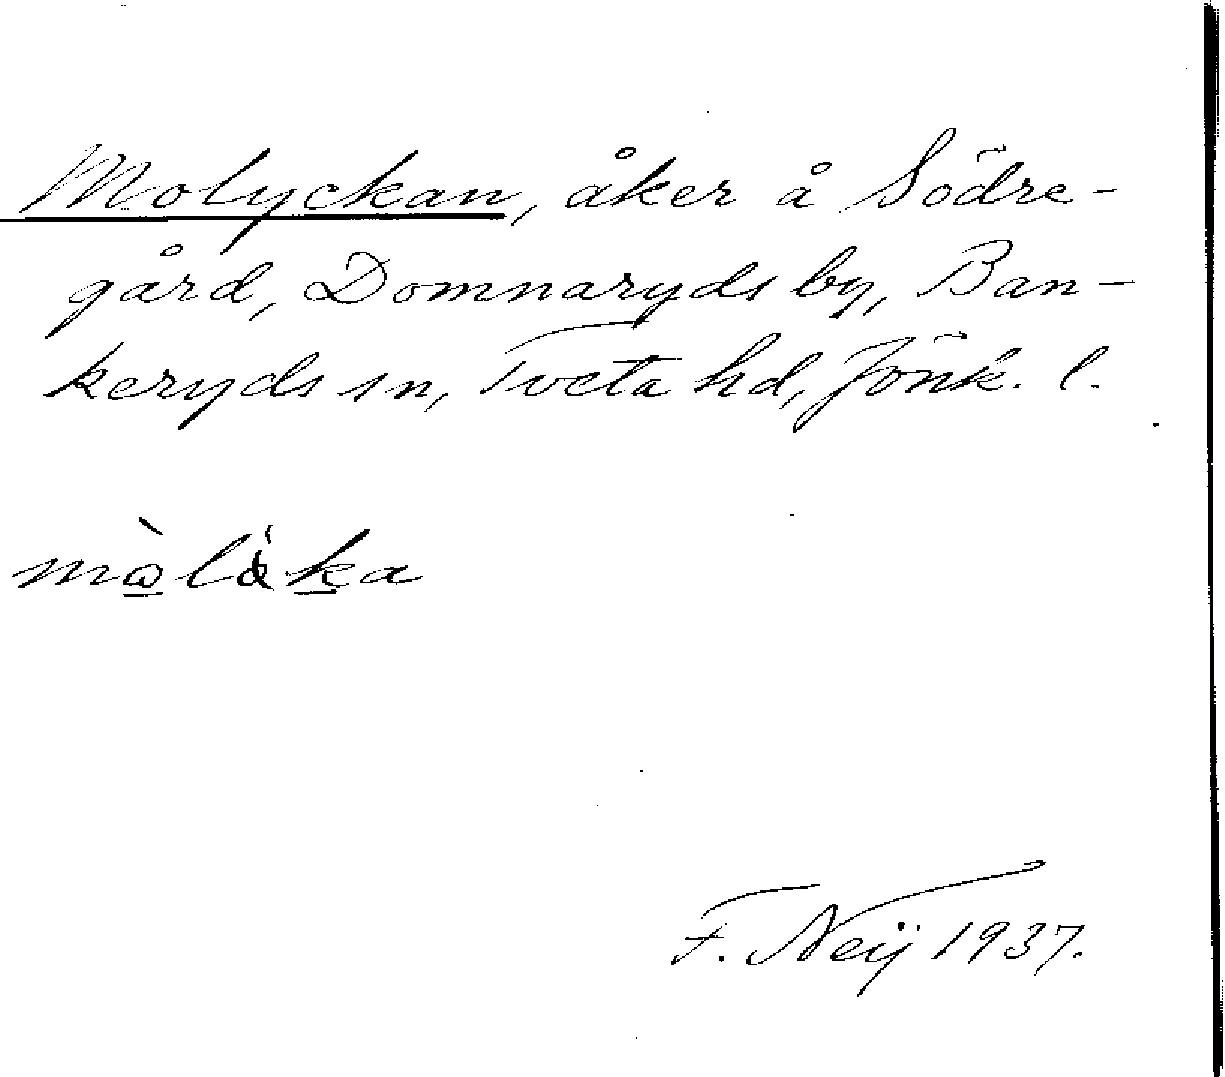 Molyckan, åker å Södre-
gård, Domnaryds by, Ban-
keryds sn, Tveta hd, Jönk. l.
F. Neij 1937.